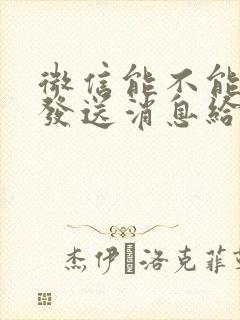 微信能不能
發送消息給
杰伊·洛克菲